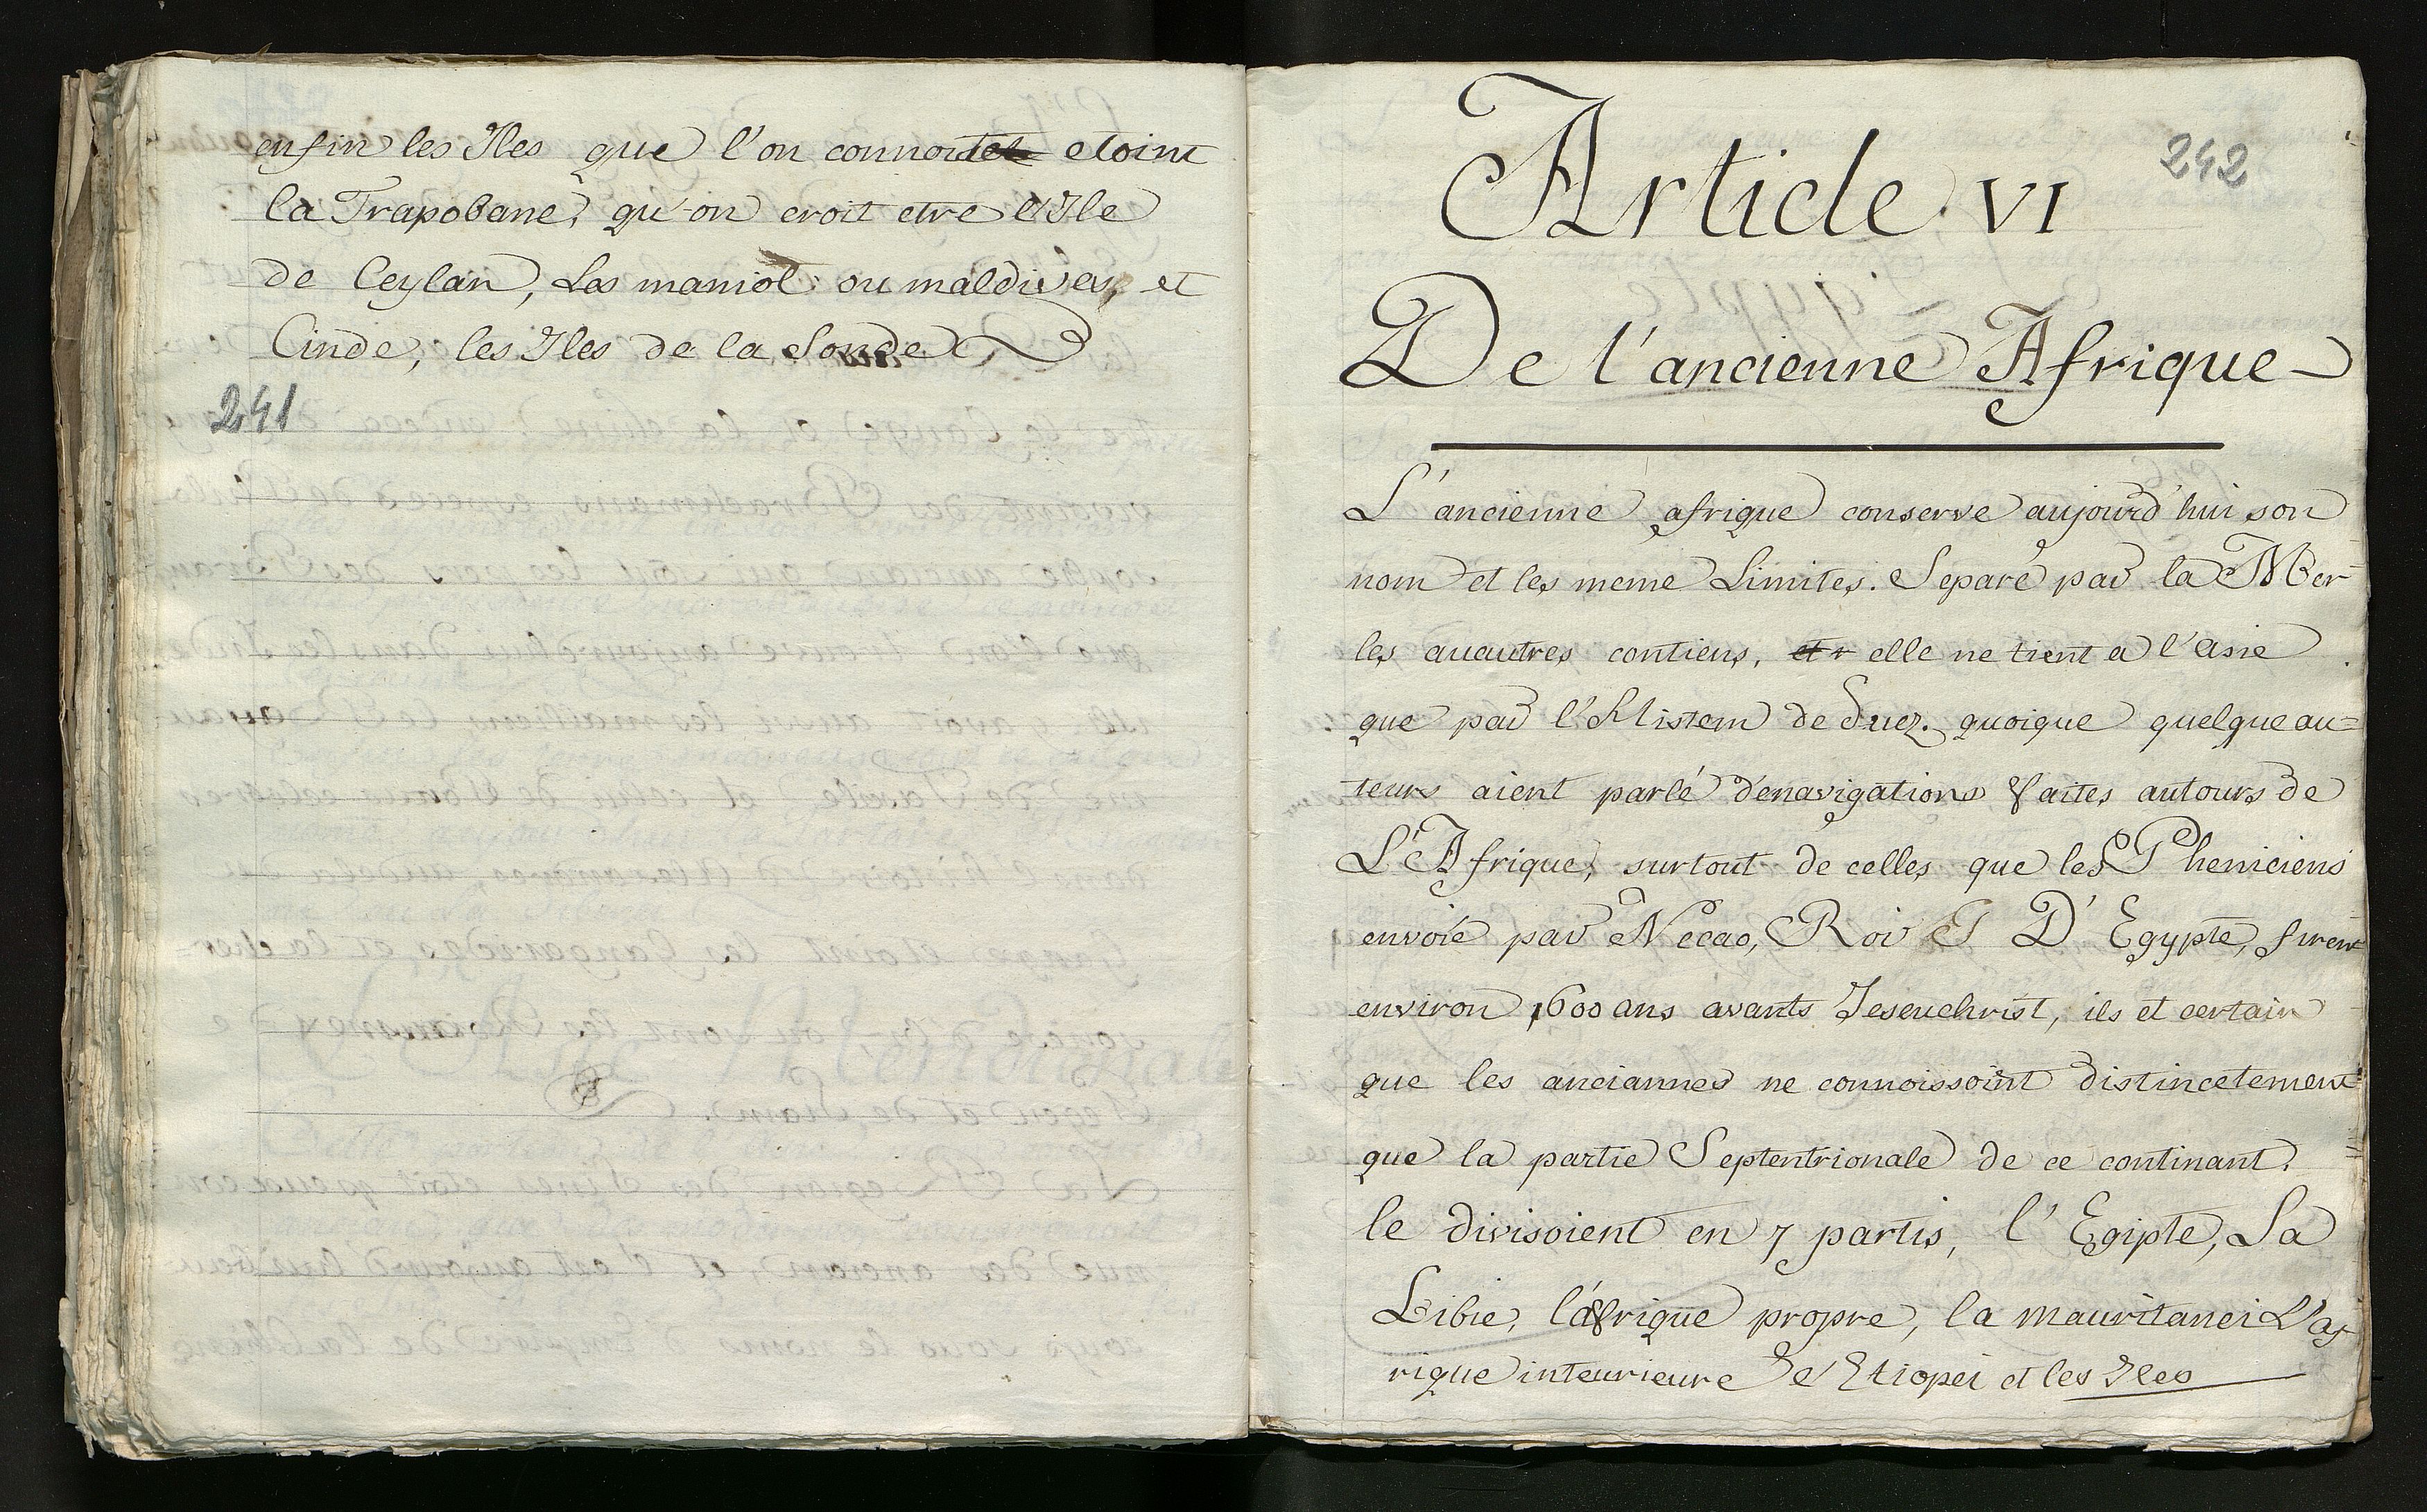 enfin les Iles que l'on connoit etoint
la Trapobane, qu'on croit etre l'Ile
de Ceylan, Les maniol ou maldives, et
Cinde, les Iles de la Sonde
241
242
Article VI
De l'ancienne Afrique
L'ancienne afrique conserve aujourd'hui son
nom et les meme Limites. Separé par la Mer
les auautres contiens, elle ne tient a l'asie
que par l' de Suez. quoique quelque au=
teurs aient parlé denavigations faites autours de
L'Afrique, surtout de celles que les Pheniciens
envoié par Necao, Roi D'Egypte, firent
environ 1600 ans avants Jeseuchrist, ils et certain
que les anciannes ne connoissoint distincetement
que la partie Septentrionale de ce continant.
le divisoient en 7 partis, l'Egipte, La
Libie, l'afrique propre, la mauritanei L'af
rique inteurieure l'Etiopei et les Iles